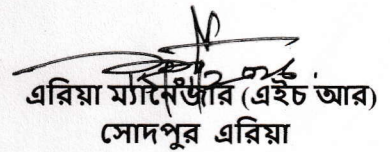 এরিয়া ম্যানেজার (এইচ আর)
সোদপুর এরিয়া